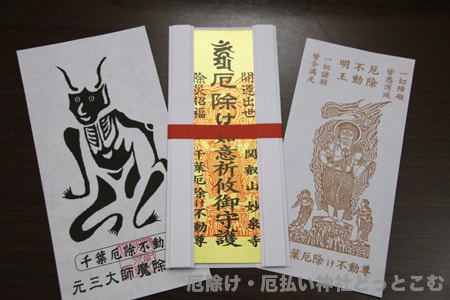 千葉厄除不動
元三大師魔除
開運出世 関叡山 妙泉寺
厄除け如意祈攸御守護
除災招福 千葉厄除け不動尊
一切障礙
皆悉消滅
厄除
不動
明王
一切諸願
皆令満足
葉厄除け不動尊
厄除け・厄払い神社どっとこむ